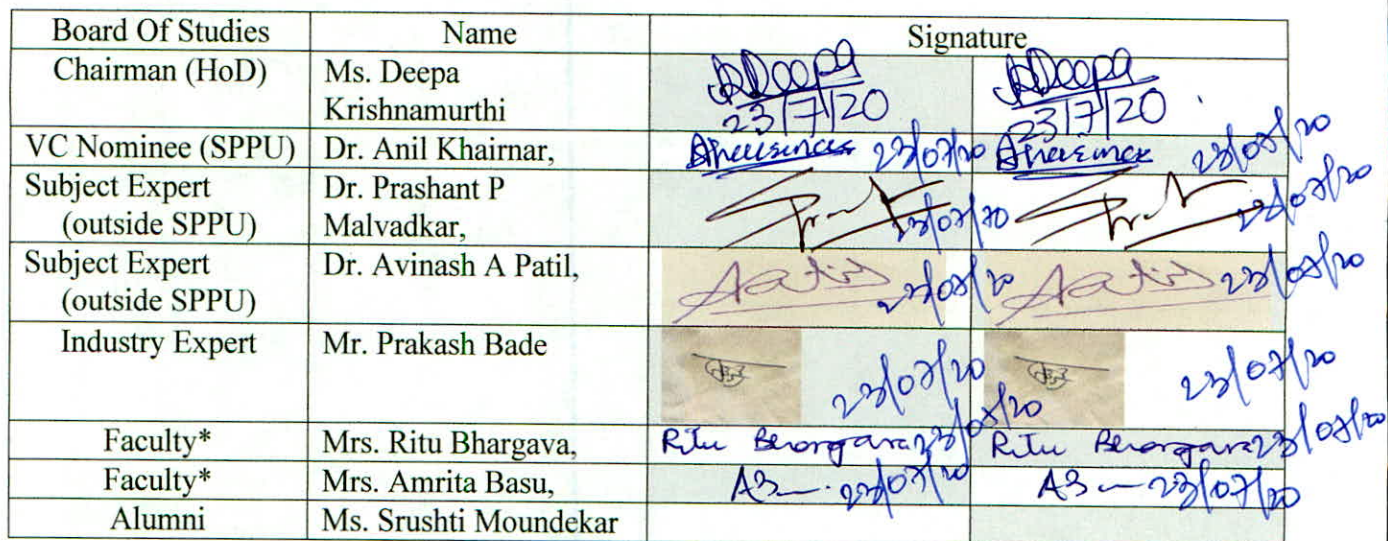 Board Of Studies Name Signature
Chairman (HoD) Ms. Deepa Deepa Deepa
Krishnamurthi 23/7/20 23/7/20
VC Nominee (SPPU) Dr. Anil Khairnar, 23/07/20 23/07/20
Subject Expert Dr. Prashant P
(outside SPPU) Malvadkar, 23/07/20 23/07/20
Subject Expert Dr. Avinash A Patil, 23/07/20 23/07/20
(outside SPPU)
Industry Expert Mr. Prakash Bade 23/07/20 23/07/20
Faculty* Mrs. Ritu Bhargava, Ritu Bhargava 23/07/20 Ritu Bhargava 23/07/20
Faculty* Mrs. Amrita Basu, 23/07/20 23/07/20
Alumni Ms. Srushti Moundekar